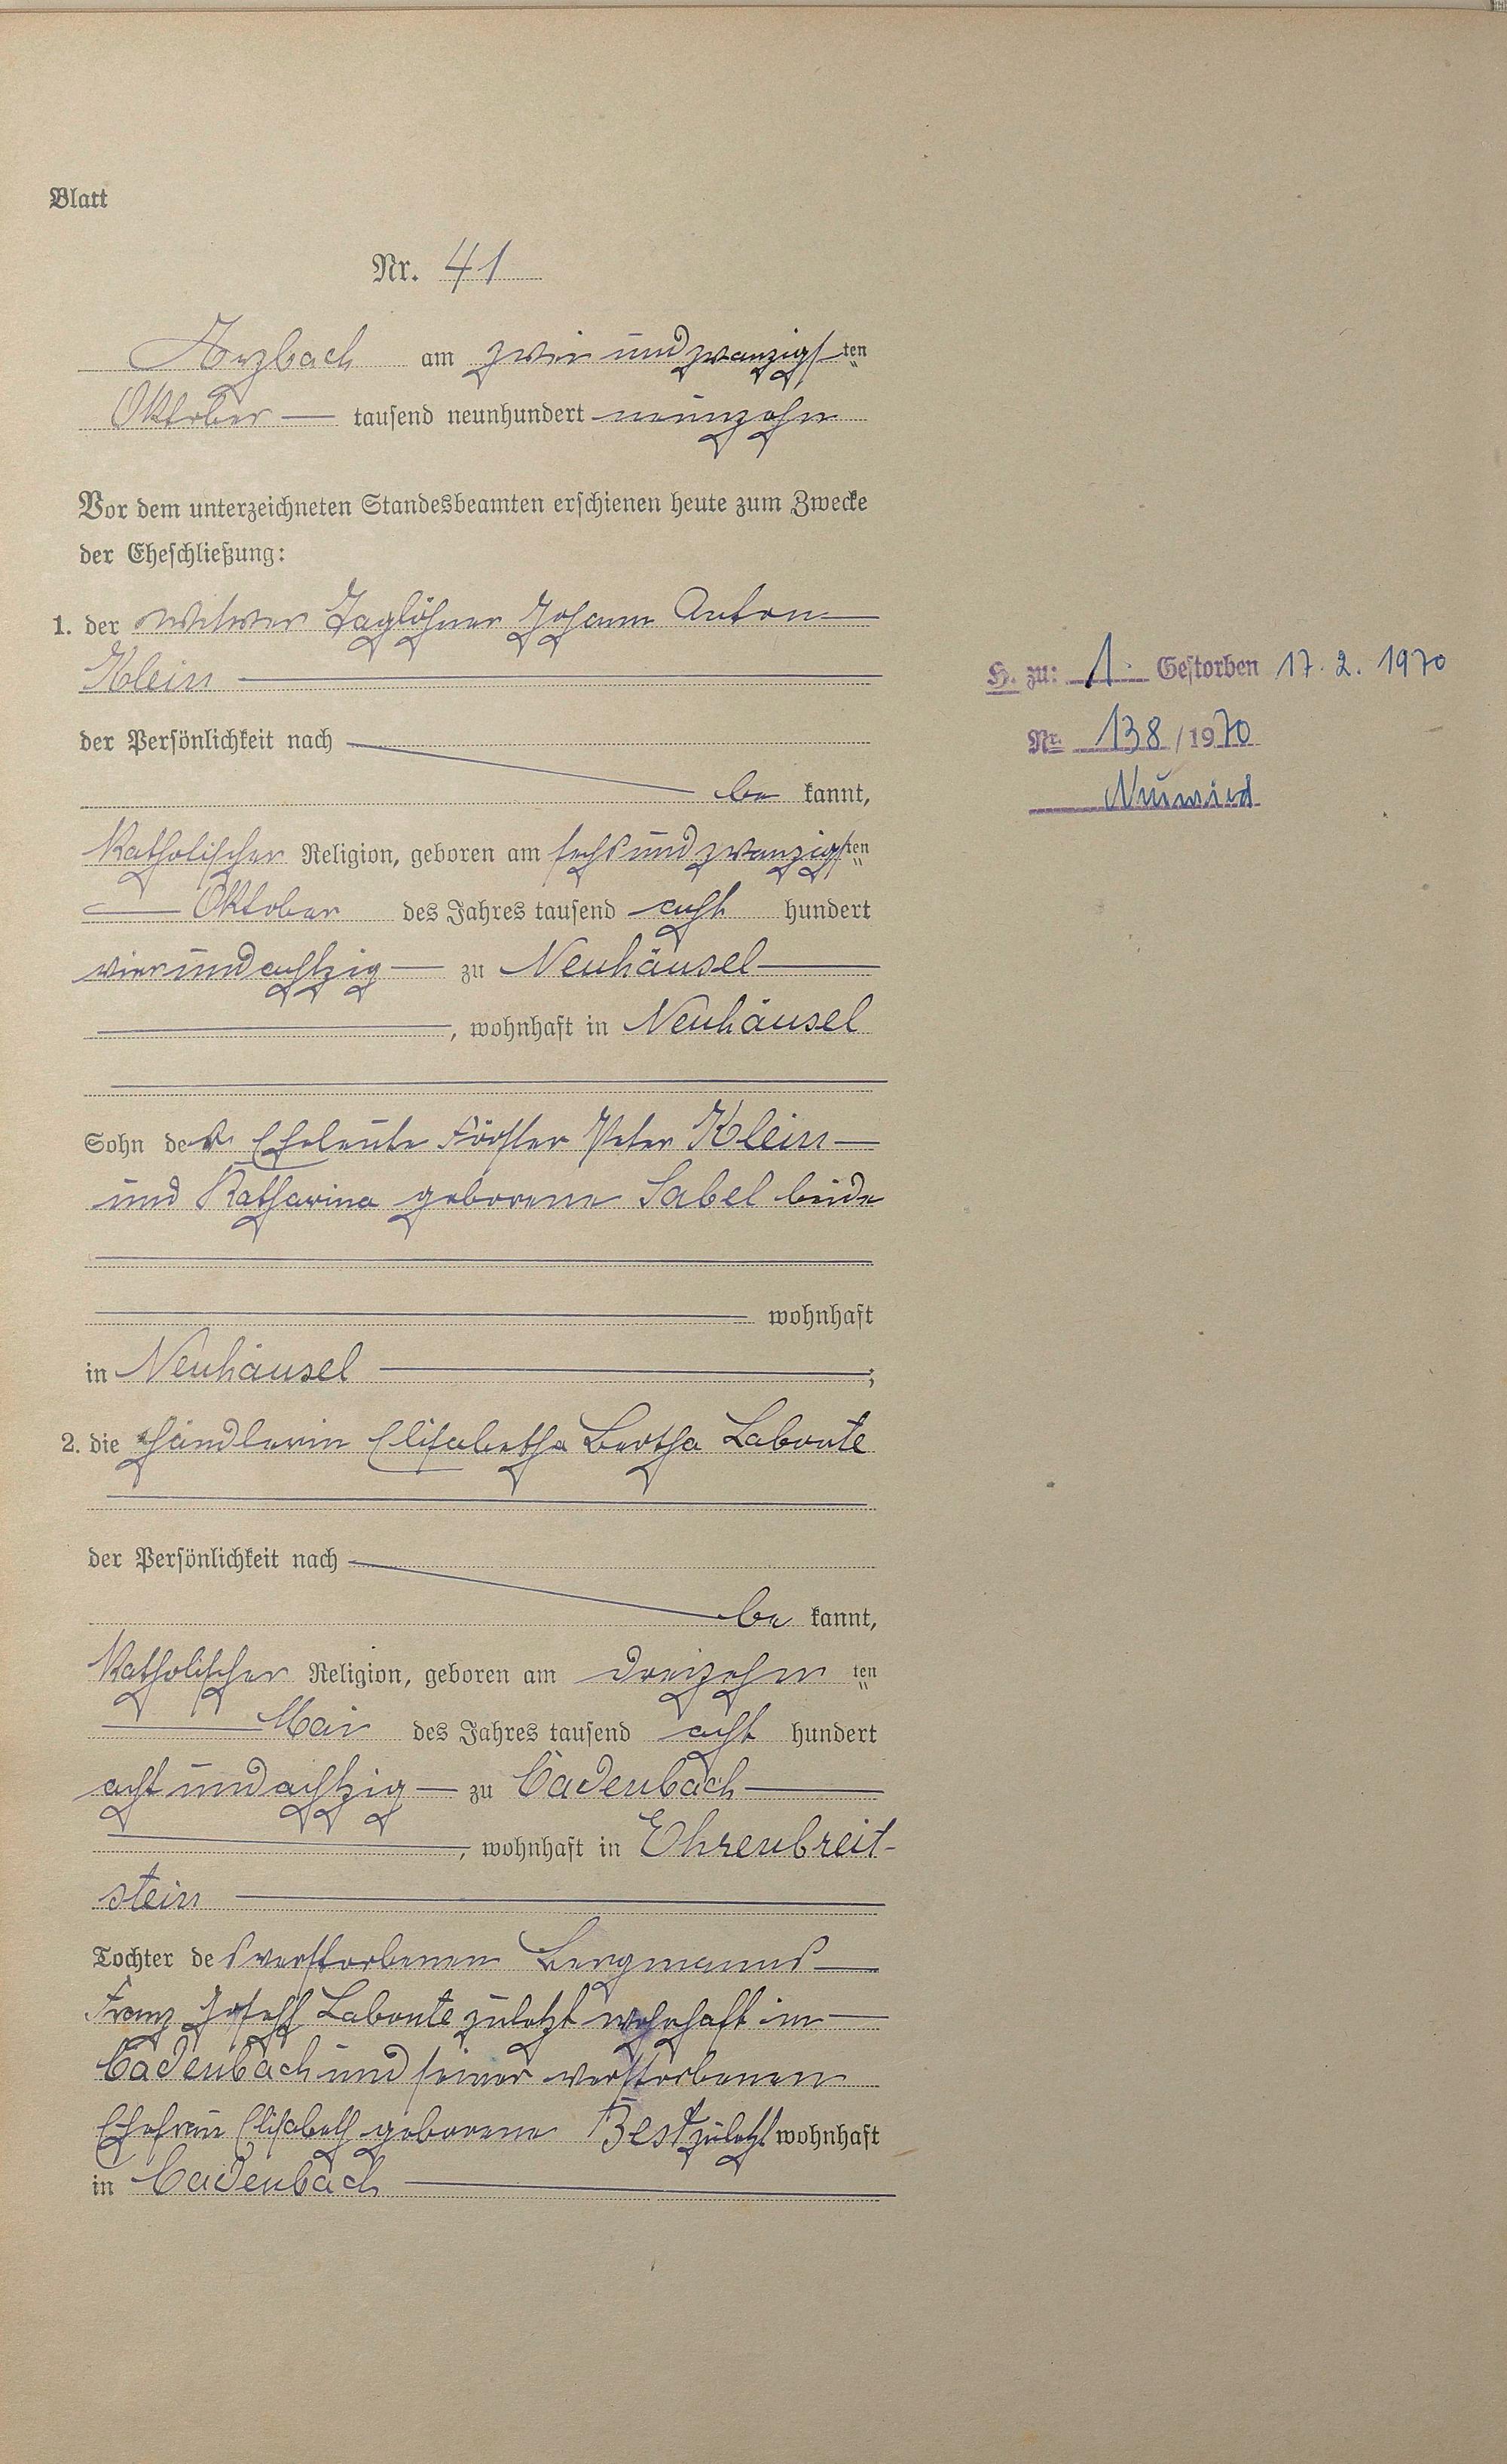 Blatt
Nr. 41
Arzbach am zwei und zwanzigsten
Oktober tausend neunhundert neunzehn
Vor dem unterzeichneten Standesbeamten erschienen heute zum Zwecke
der Eheschließung:
1. der Witwer Taglöhner Johann Anton
Klein
der Persönlichkeit nach
be kannt,
katholischer Religion, geboren am sechs und zwanzigsten
Oktober des Jahres tausend acht hundert
vier und achtzig zu Neuhäusel
, wohnhaft in Neuhäusel
Sohn der Eheleute Förster Peter Klein
und Katharina geborene Sabel beide
wohnhaft
in Neuhäusel ;
2. die Händlerin Elisabetha Bertha Labonte
der Persönlichkeit nach
be kannt,
katholischer Religion, geboren am dreizehn ten
Mai des Jahres tausend acht hundert
acht und achtzig zu Cadenbach
, wohnhaft in Ehrenbreit-
stein
Tochter des verstorbenen Bergmanns
Franz Joseph Labonte zuletzt wohnhaft in
Cadenbach und seiner verstorbenen
Ehefrau Elisabeth geborene Best zuletzt wohnhaft
in Cadenbach
H. zu: 1. Gestorben 17. 2. 1970
Nr. 138 / 1970
Neuwied